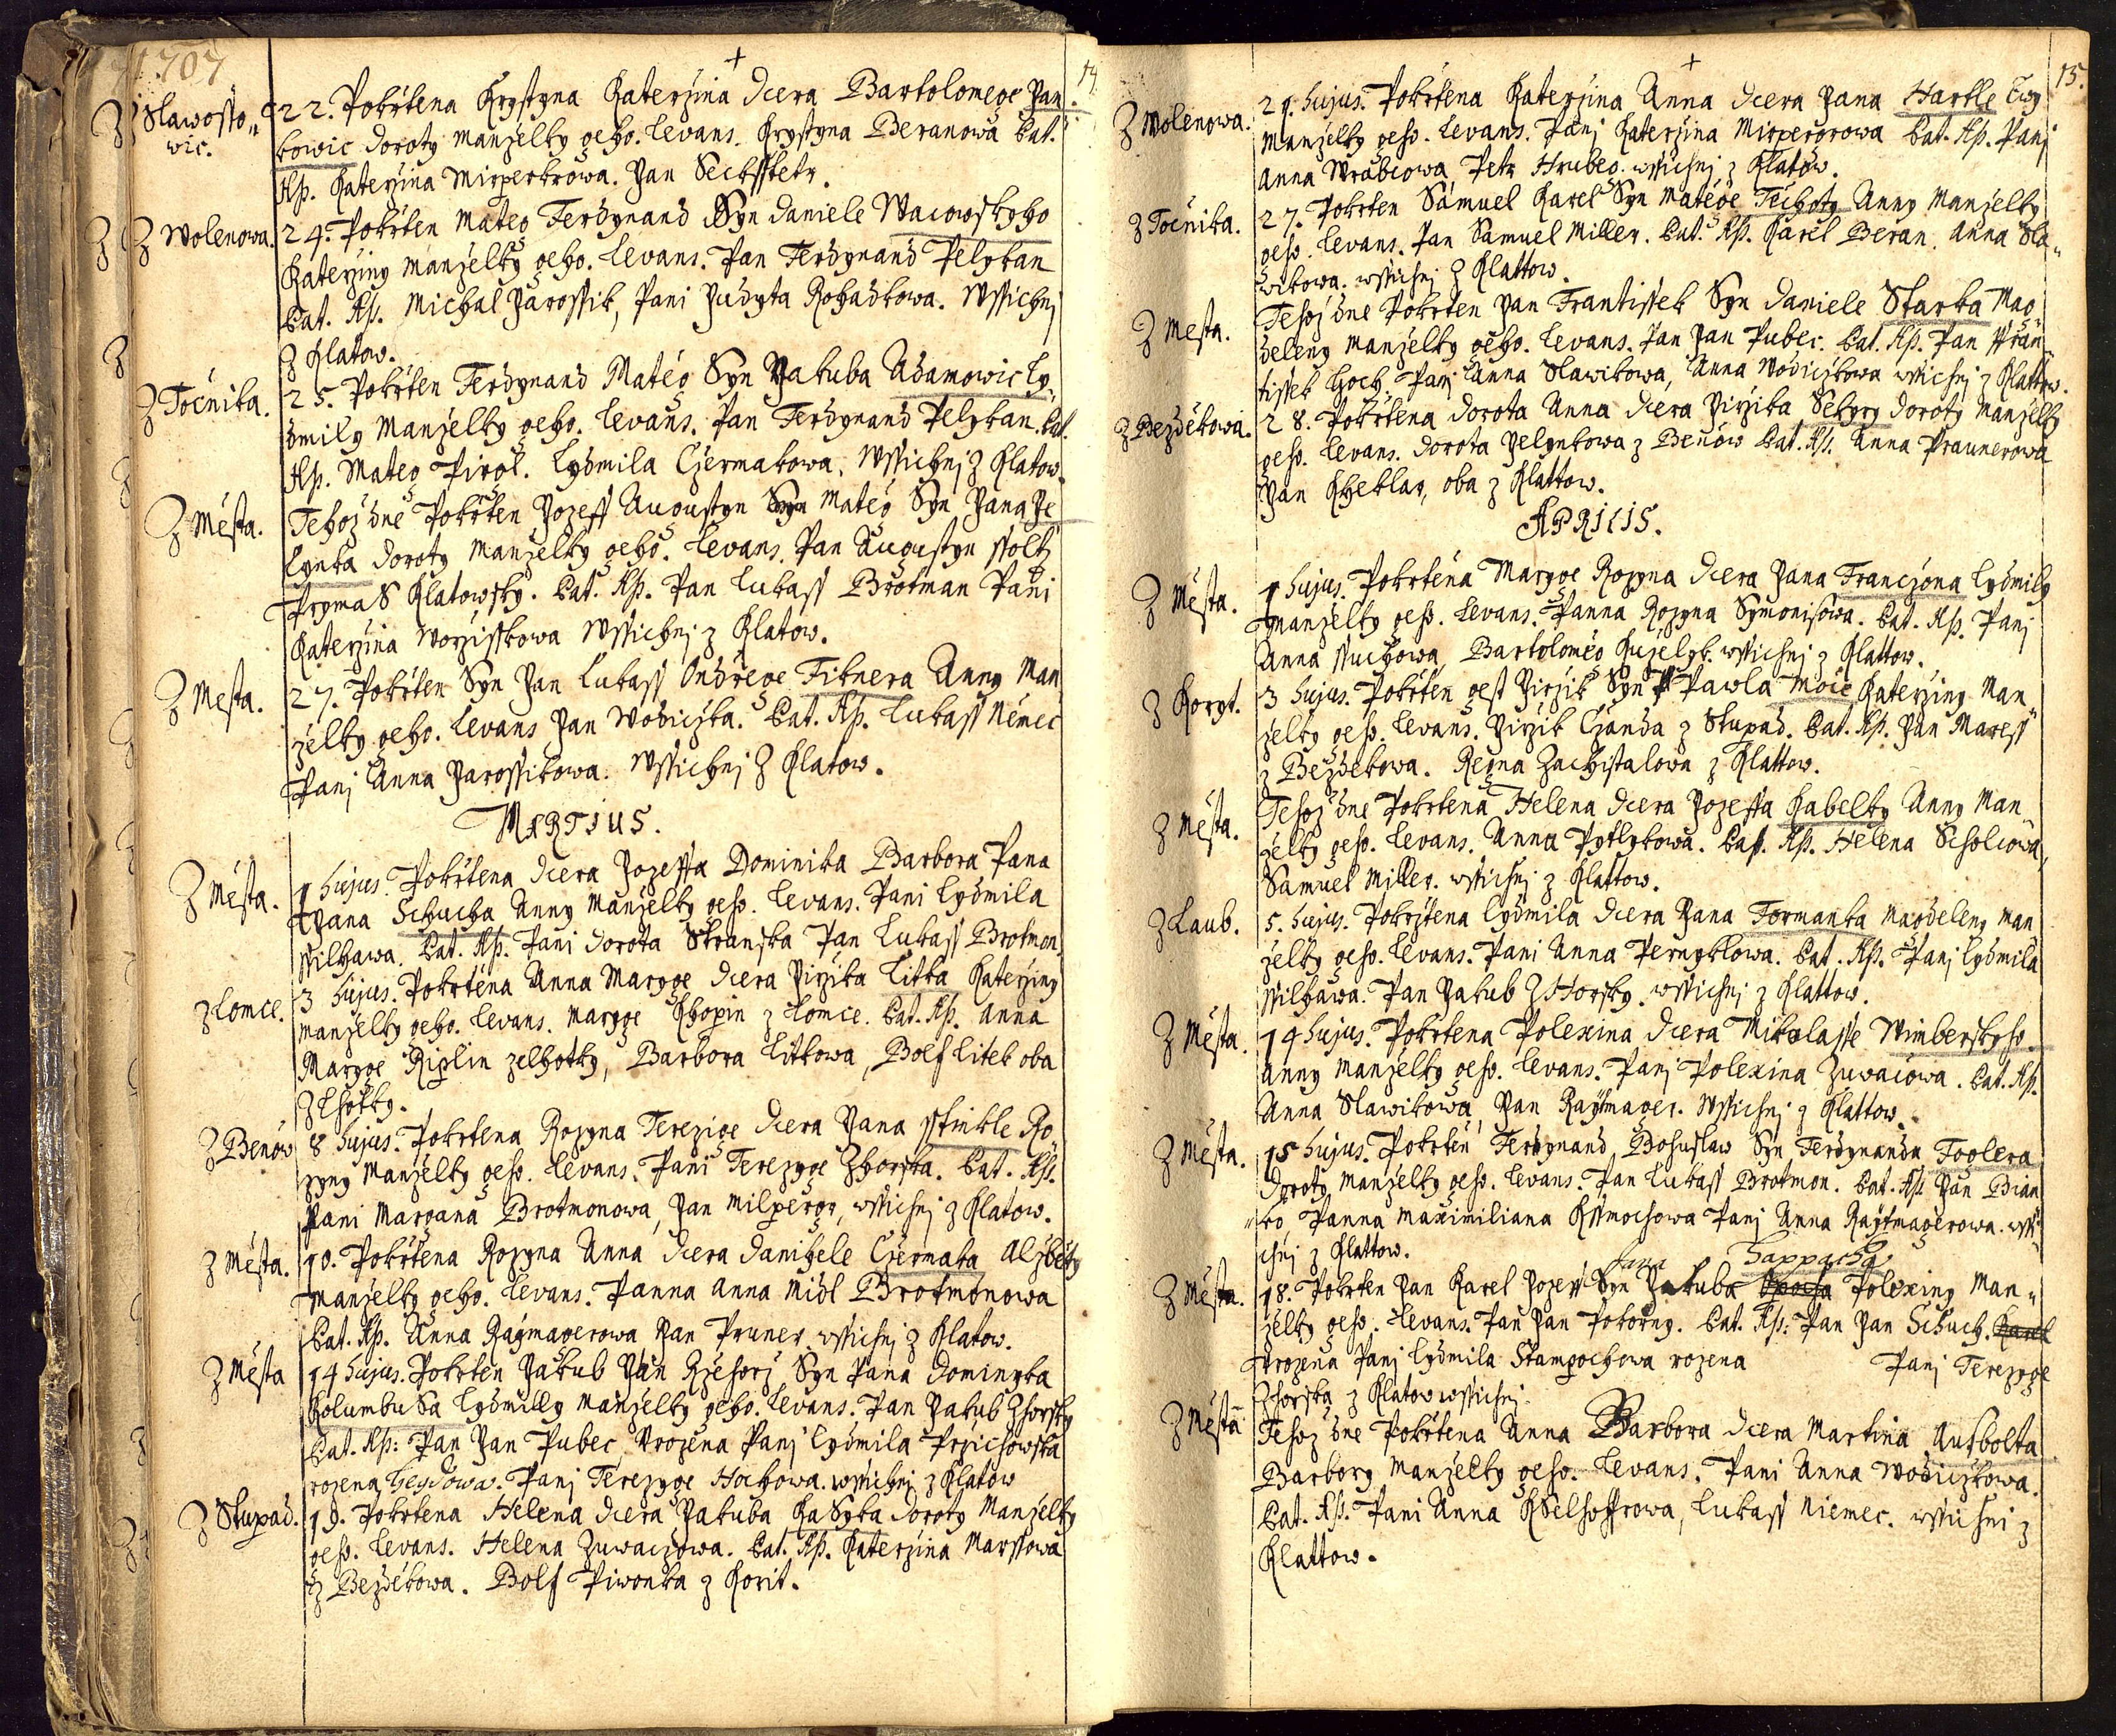 1707
+
14.
Z Slawosso„
wic.
22. Pokrtena Krystyna Katerzina dcera Bartolomege Jan
kowic doroty manzelky geho. Levans. Krystyna Beranowa Cat.
Ksp. Katerzina Mirperkrowa. Jan Seckssketr.
Z Wolenowa.
24. Pokrten Mateg Ferdynand Syn daniele Wacowskyho
Katerziny manzelky geho. Levans. Pan Ferdynand Pelykan
Cat. Ksp. Michal Jarossik, Pani Judyta Rohadkowa. Wssichnj
Z Klatow.
Z Točnika.
25. Pokrten Ferdynand Matég Syn Jakuba Adamowic Ly„
dmily Manzelky geho. Levans. Pan Ferdynand Pelykan. Cat.
Ksp. Mateg Pirol. Lydmila Czermakowa. Wssichnj Z Klatow.
Z Města.
Tehoz dne Pokrten Jozeff Augustyn Syn Matég Syn Jana Je
lynka doroty manzelky geho. Levans. Pan Augustyn sstoltz
PrymaS Klatowsky. Cat. Ksp. Pan Lukass Brotman Pani
Katerzina Worzisskowa Wssichnj z Klatow.
Z Mesta.
27. Pokrten Syn Jan Lukass Ondřege Fiknera Anny Man
zelky geho. Levans Jan Wodiczka. Cat. Ksp. Lukass Němec
Panj Anna Jarossikowa. Wssichnj Z Klatow.
MARTIUS.
Z Města.
1 hujus. Pokrtena dcera Jozeffa Dominika Barbora Pana
Jana Schucha Anny Manzelky geho. Levans. Pani Lydmila
ssilhawa. Cat. Ksp. Pani dorota Stranska Pan Lukass Brotmon.
z Lomce.
3 hujus. Pokrtena Anna Marye dcera Jirzika Litka Katerziny
manzelky geho. Levans. Marye Khopin z Lomce. Cat. Ksp. Anna
Marye Riplin zelhotky, Barbora Litkowa, Bolf Litek oba
Z Lhotky.
Z Benow
8 hujus. Pokrtena Rozyna Terezige dcera Jana sstinkle Ro
zyny Manzelky geho. Levans. Pani Terezyge Zhorska. Cat. Ksp.
Pani Margana Brotmonowa, Jan Milpergr, wssichnj z Klatow.
z Města.
10. Pokrtena Rozyna Anna dcera danihele Czermaka Alzběty
Manzelky geho. Levans. Panna Anna Midl Brotmonowa
Cat. Ksp. Anna Raymagerowa Jan Pruner. wssichnj z Klatow.
Z Města
14 hujus. Pokrten Jakub Jan Rzehorz Syn Pana Dominyka
KolumbuSa Lydmilly manzelky geho. Levans. Pan Jakub Zhorsky
Cat. Ksp: Pan Jan Pubec, Urozena Panj Lydmila Przichowska
rozena Heydowa. Panj Terezyge Hochowa. wssichnj z Klatow
Z Stupad.
19. Pokrtena Helena dcera Jakuba KaSyka doroty Manzelky
geho. Levans. Helena Zuwaczowa. Cat. Ksp. Katerzina Marssowa
z Bezdekowa. Bolf Piwonka z Korit.
+
15.
Z Wolenowa.
21. hujus. Pokrtena Katerzina Anna dcera Jana Hartle Ewy
manzelky geho. Levans. Panj Katerzina Mirpergrowa Cat. Ksp. Panj
Anna Wrabcowa, Petr Hrubes. wssichnj z Klatow.
z Točnika.
27. Pokrten Sámuel Karel Syn Matége Tichoty Anny Manzelky
geho. Levans. Pan Samuel Miller. Cat. Ksp. Karel Beran. Anna Sla„
wikowa. wssichnj Z Klattow.
Z Mesta.
Tehoz dne Pokrten Jan Frantissek Syn daniele Starka Mag„
deleny manzelky geho. Levans. Pan Jan Pubec. Cat. Ksp. Pan Ffran
tissek Hoch. Panj Anna Slawikowa, Anna Wodiczkowa wssichnj z Klattow.
z Bezdekowa.
28. Pokrtena dorota Anna dcera Jirzika Sekyry doroty Manzelky
geho. Levans. dorota Jelynkowa z Benow Cat. Ksp. Anna Praunerowa
Jan Kheklar, oba z Klattow.
APRILIS.
Z Města.
1 hujus. Pokrtena Marye Rozyna dcera Jana Franczona Lydmily
manzelky geho. Levans. Panna Rozyna Symonisowa. Cat. Ksp. Panj
Anna sstuchowa, Bartoloměg Kuzelyk. wssichnj z Klattow.
z Koryt.
3 hujus. Pokrten gest Jirzik Syn Pawla Moce Katerziny Man„
zelky geho. Levans. Jirzik Czanda z Stupad. Cat. Ksp. Jan Maress
z Bezdekowa. Regna Zachystalowa z Klattow.
Z Města.
Tehoz dne Pokrtena Helena dcera Jozeffa Kabelky Anny Man„
zelky geho. Levans. Anna Pytlykowa. Cat. Ksp. Helena Scholcowa,
Samuel Miller. wssichnj z Klattow.
z Laub.
5. hujus. Pokrztena Lydmila dcera Jana Formanka Magdeleny Man
zelky geho. Levans. Pani Anna Pernyklowa. Cat. Ksp. Panj Lydmila
ssilhawa. Pan Jakub Z Horsky. wssichnj z Klattow.
Z Města.
14 hujus. Pokrtena Polexina dcera Mikolasse Wimberskyho.
Anny Manzelky geho. Levans. Panj Polexina Zuwacowa. Cat. Ksp.
Anna Slawikowa, Jan Raytmager. Wssichnj z Klattow.
Z Města.
15 hujus. Pokrten Ferdynand Bohuslaw Syn Ferdynanda Foglera
doroty Manzelky geho. Levans. Pan Lukass Brotmon. Cat. Ksp Jan Bian
„ko Panna Maximiliana Kssmochowa Panj Anna Raytmagerowa. wssi„
chnj z Klattow.
Jana Happacha
Z Města.
18. Pokrten Jan Karel Jozeff Syn Jakuba Polexiny Man„
zelky geho. Levans. Pan Jan Pokorny. Cat. Ksp: Pan Jan Schuch. Karel
Urozena Panj Lydmila Stampochowa rozena Panj Terezyge
Zhorska z Klatow wssichnj.
Z Města
Tehoz dne Pokrtena Anna Barbora dcera Martina Autbolta
Barbory Manzelky geho. Levans. Pani Anna Wodiczkowa.
Cat. Ksp. Pani Anna Kselhoffrowa, Lukass Niemec. wssichni z
Klattow.